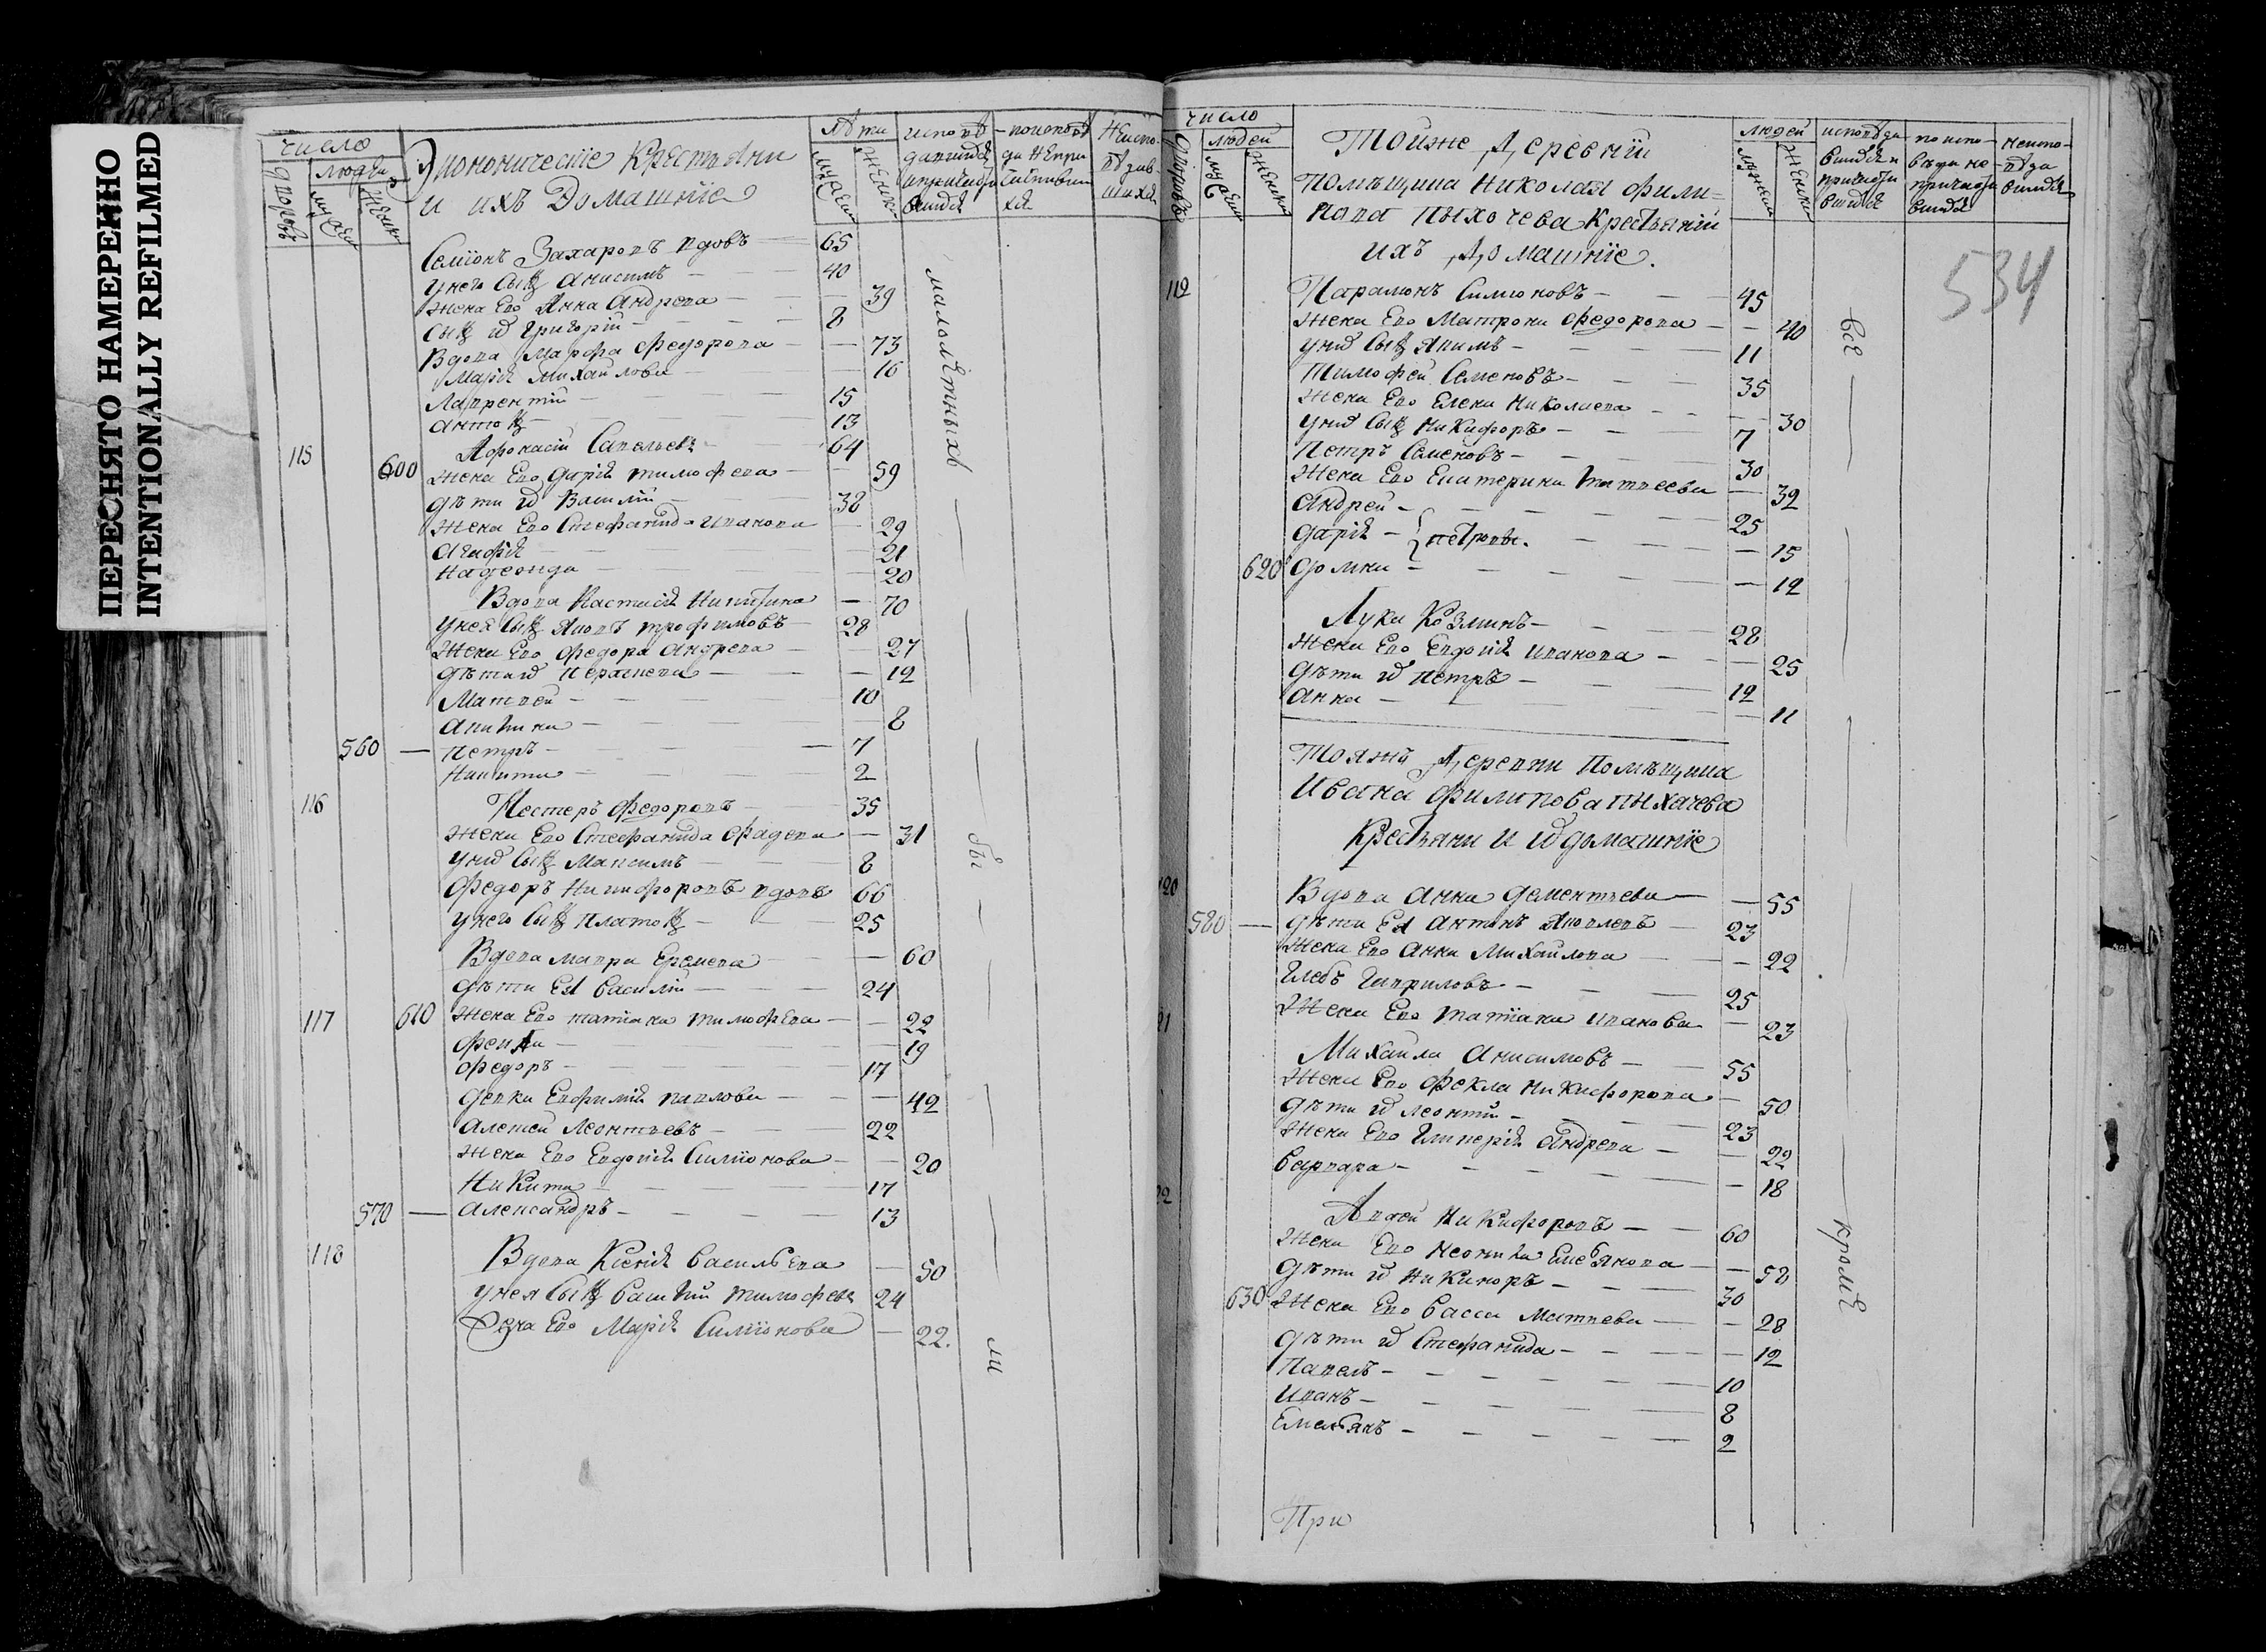 ПЕРЕСНЯТО НАМЕРЕННО
INTENTIONALLY REFILMED
число
людей
дворовъ
мужеск
женск
Экономическіе Крестьяни
и ихъ Домашніе
лѣта
мужеск
женск
Семіонъ Захаровъ вдовъ — 65
у него сынъ Анисимъ — 40
жена Его Анна Андрева — 39
сынъ их Григорій — 8
Вдова Марфа Федорова — 73
Марія Михайлова — 16
Лаврентій — 15
Антонъ — 13
115 Афонасій Савельевъ — 64
600 жена Его Дарія Тимофева — 59
дѣти их Василій — 38
жена Его Стефанида Иванова — 29
Агафія — 21
Надежда — 20
Вдова Настасія Никитина — 70
у нея сынъ Яковъ Трофимовъ — 28
жена Его Федора Андрева — 27
дѣти их — 12
Матвей — 10
— 8
560 — Петръ — 7
Никита — 2
116 Нестеръ Федоровъ — 35
жена Его Стефанида Фадева — 31
у них сынъ Максимъ — 8
Федоръ Никифоровъ вдовъ 66
у него сынъ Платонъ — 25
Вдова Мавра Еремева — 60
дѣти Ея Василій — 24
117 610 жена Его Татіана Тимофева — 22
— 19
Федоръ — 17
девка Евфимія Павлова — 42
Алексей Леонтьевъ — 22
жена Его Евдокія Симіонова — 20
Никита — 17
570 — Александръ — 13
118 Вдова Ксенія Васильева — 50
у нея сынъ Василій Тимофевъ 24
жена Его Марія Симіонова — 22.
малолѣтныхъ — бы — ли
число
дворовъ
людей
мужеск
женск
Тойже Деревніи
Помѣщика Николая Фили-
пова Пыхочева Крестьяніи
ихъ Домашніе.
людей
мужеск
женск
исповѣда-
вшихся и
причасти
вшихся
по испо-
вѣди не
причасти
вшихся
неиспо-
вѣда
вшихся
534
119 Парамонъ Симіоновъ — 45
жена Его Матрона Федорова — 40
у них сынъ Якимъ — 11
Тимофей Семеновъ — 35
жена Его Елена Николаева — 30
у них сынъ Никифоръ — 7
Петръ Семеновъ — 30
жена Его Екатерина Матвеева — 32
Андрей — 25
Дарія — Петровы. — 15
620 Домна — 12
Лука Козминъ — 28
жена Его Евдокія Иванова — 25
дѣти их Петръ — 12
Анна — 11
Тояжъ Деревни Помѣщика
Ивана Филипова Пыхачева
Крестьяни и их домашніе
120 Вдова Анна Дементьева — 55
580 — дѣти Ея Антонъ Яковлевъ — 23
жена Его Анна Михайлова — 22
Глебъ Гавриловъ — 25
121 жена Его Татіана Иванова — 23
Михаила Анисимовъ — 55
жена Его Фекла Никифорова — 50
дѣти их Леонтій — 23
жена Его Гликерія Андрева — 22
Варвара — 18
122 Авдей Никифоровъ — 60
жена Его Неонила Емельянова — 58
дѣти их Никаноръ — 30
630 жена Его Васса Матвева — 28
дѣти их Стефанида — 12
Павелъ — 10
Иванъ — 8
Емельянъ — 2
все — кромѣ
При